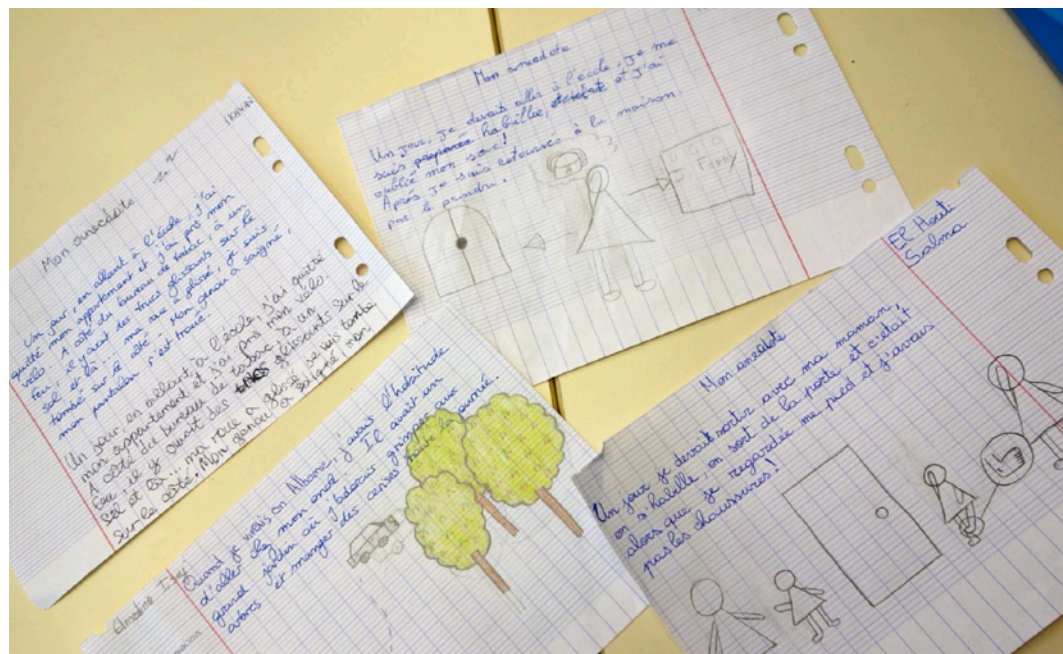 Mon anecdote
Un jour, en allant à l'école, j'ai
quitté mon appartement et j'ai pris mon
vélo. A côté du bureau de tabac, à un
feu, il y avait des trucs glissants sur le
sol et là... ma roue a glissé, je suis
tombé sur le côté. Mon genou a saigné,
mon pantalon s'est troué.
Un jour, en allant, à l'école, j'ai quitté
mon appartement et j'ai pris mon vélo.
A côté du bureau de tabac à un
feu, il y avait des glissants sur le
sol et là... ma roue a glissé, je suis tombé
sur le côté. Mon genou a saigné, mon
Mon anecdote
Un jour, je devais aller à l'école, je me
suis habillée, et j'ai
oublié mon sac!
Après je suis retournée à la maison
pour le prendre.
Quand je vivais en Albanie, j'avais l'habitude
d'aller chez mon ami. Il avait un
grand jardin où j'adorais grimper aux
arbres et manger des cerises toute la journée.
maison
El Haouti
Salma
Mon anecdote
Un jour je devait sortir avec ma maman,
on s'habille, on sort de la porte et c'était
alors que je regardée me pied et j'avais
pas les chaussures!